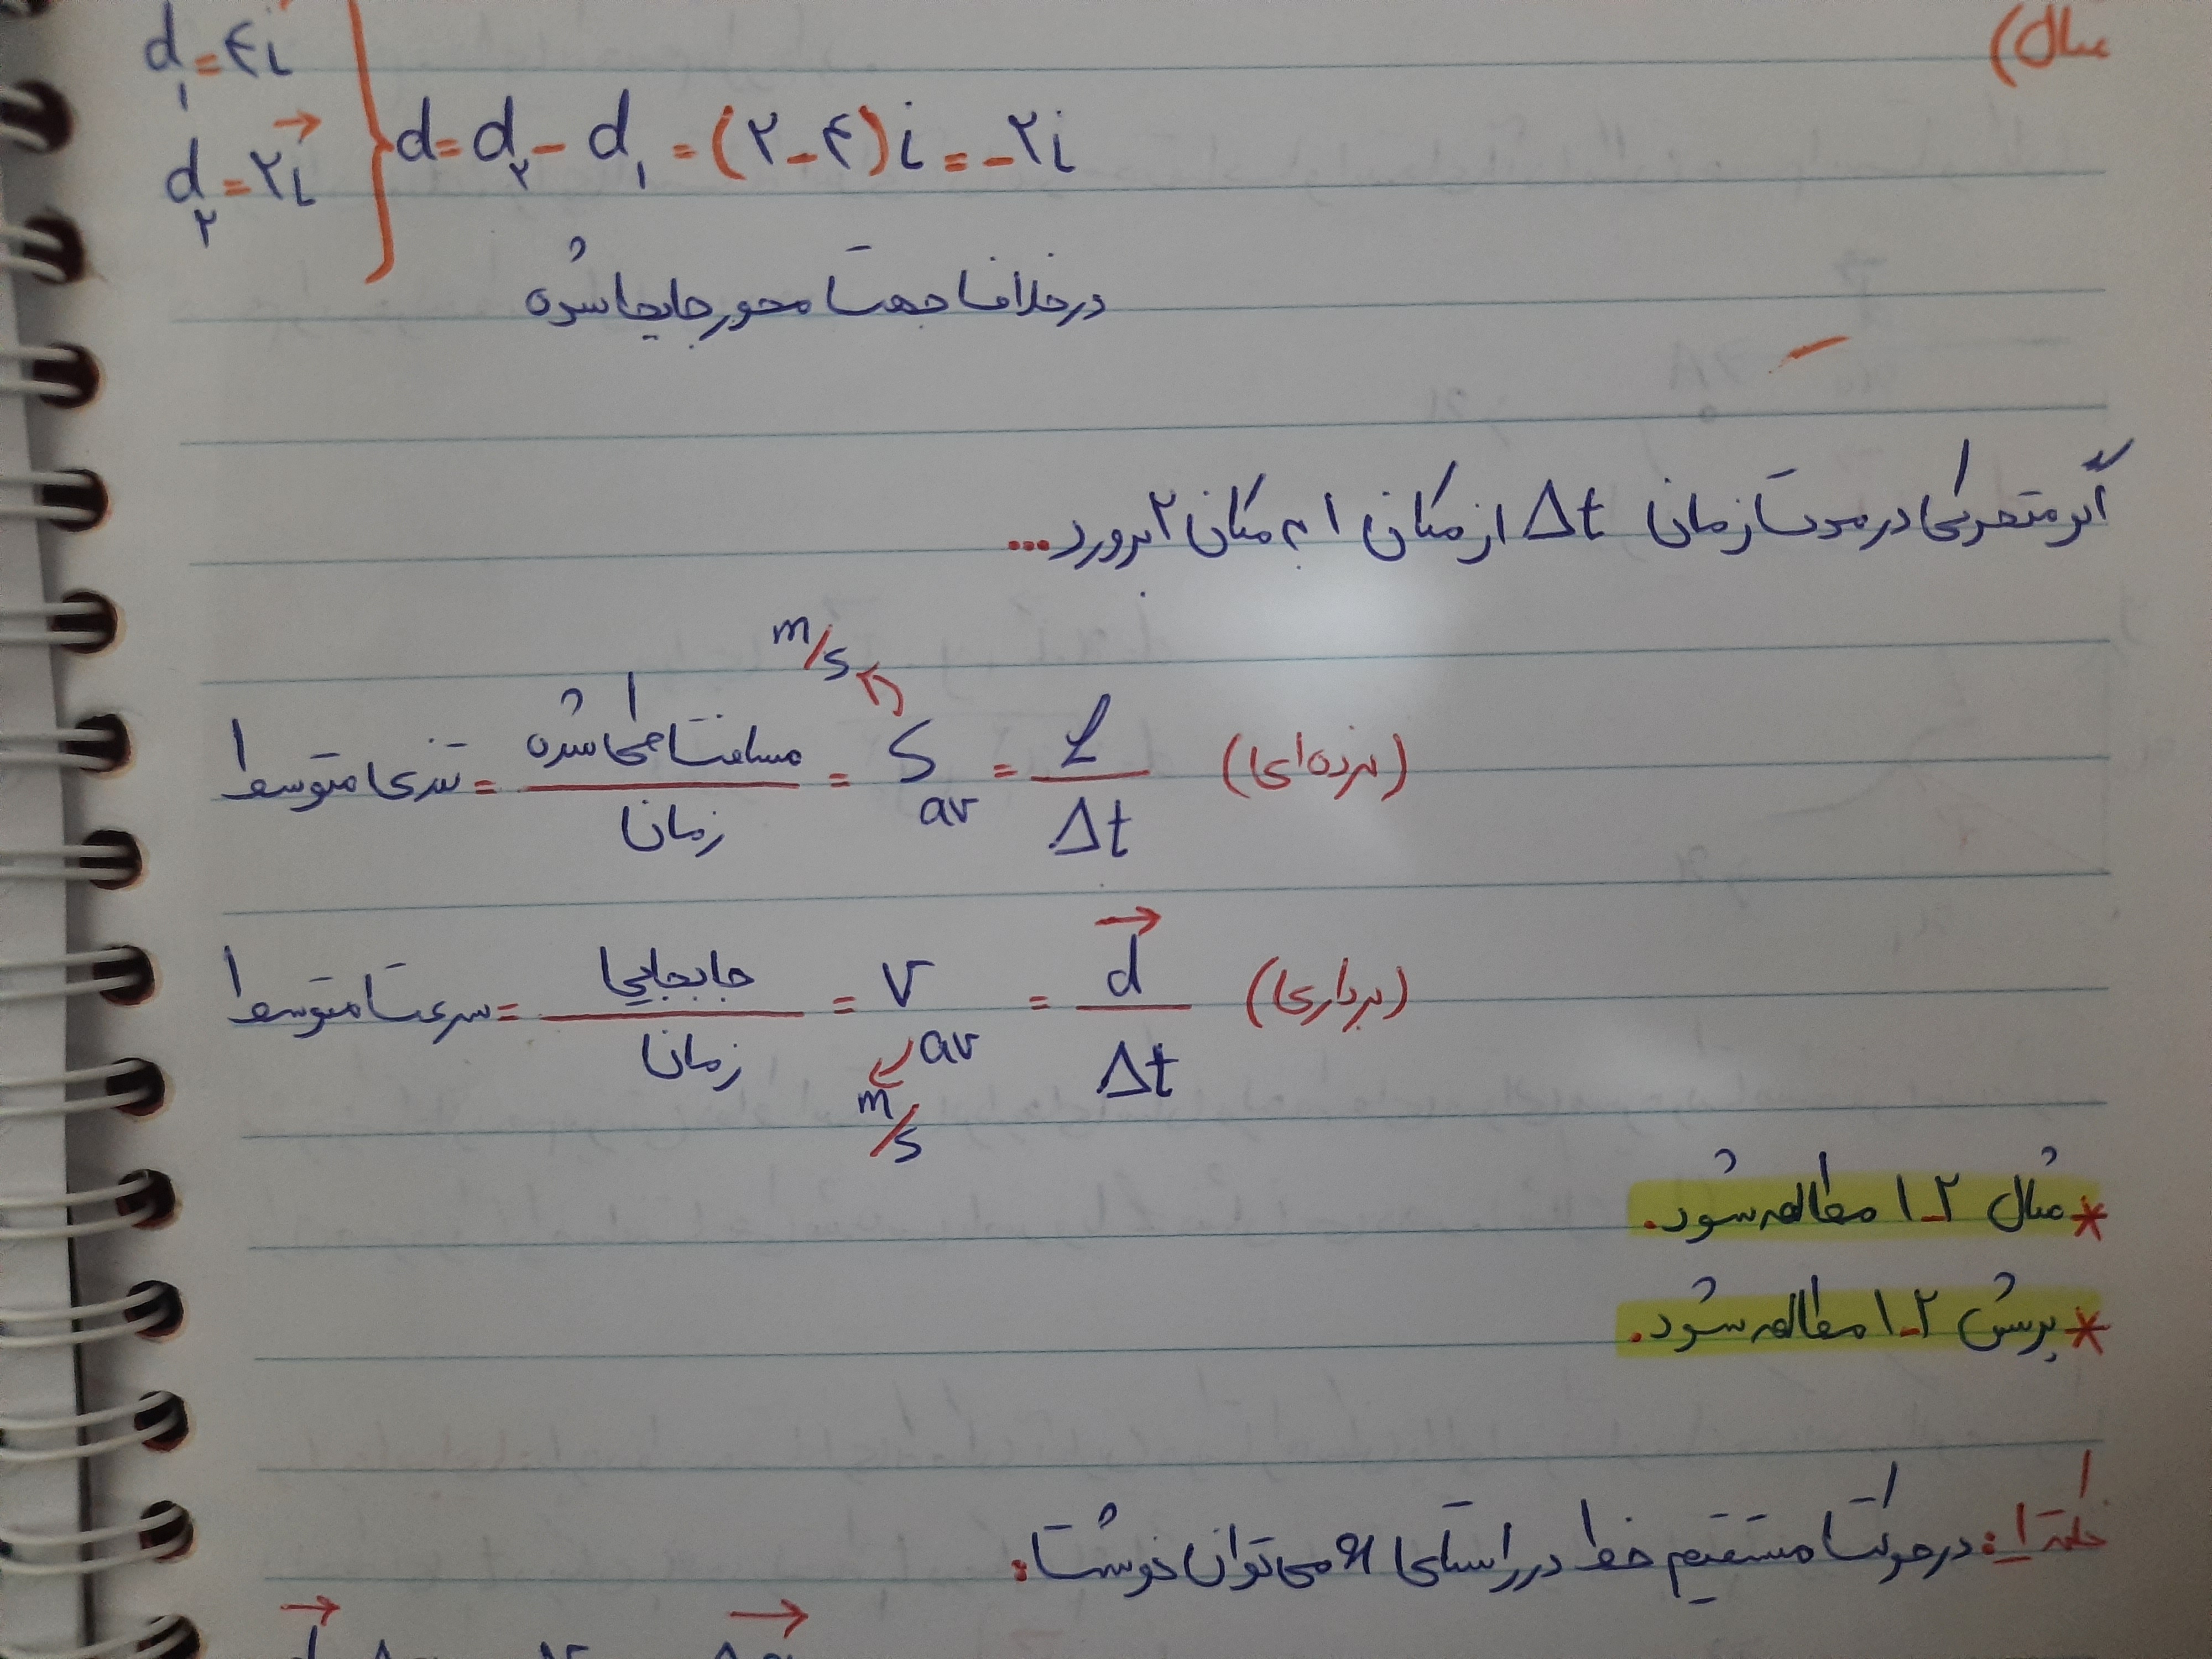 مثال)
d₁=۴i
d₂=۲i
d=d₂-d₁=(۲-۴)i=-۲i
در خلاف جهت محور جابجا شده
اگر متحرکی در مدت زمان Δt از مکان ۱ به مکان ۲ برود...
m/s
تندی متوسط = مسافت طی شده / زمان = Sav = L / Δt (نرده‌ای)
سرعت متوسط = جابجایی / زمان = Vav = d / Δt (برداری)
m/s
* مثال ۲-۱ مطالعه شود.
* پرسش ۲-۱ مطالعه شود.
نکته ۱: در حرکت مستقیم خط در راستای x می‌توان نوشت: